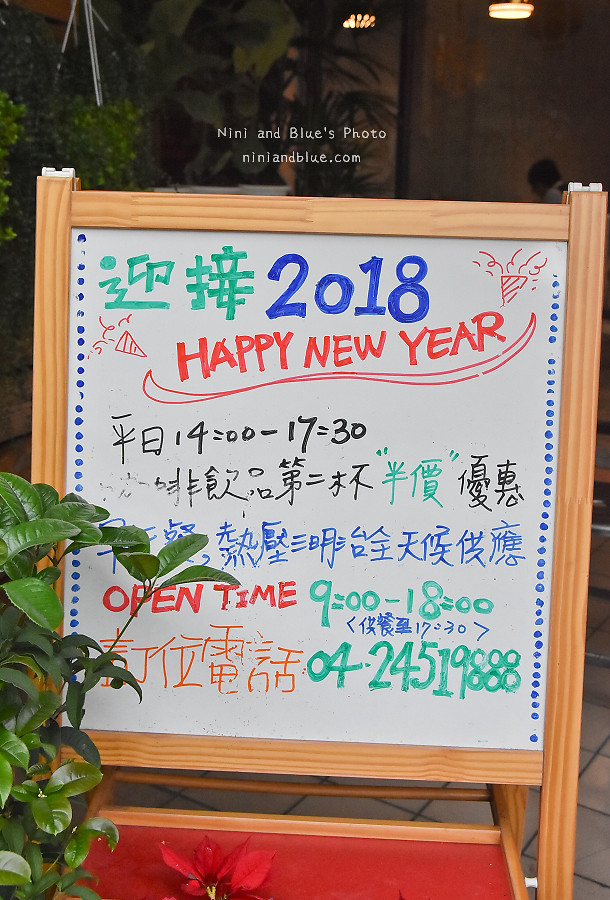 Nini and Blue's Photo
niniandblue.com
迎接2018
HAPPY NEW YEAR
平日14:00-17:30
咖啡飲品第二杯"半價"優惠
早午餐,熱壓三明治全天候供應
OPEN TIME 9:00-18:00
<供餐至17:30>
訂位電話04-24519888